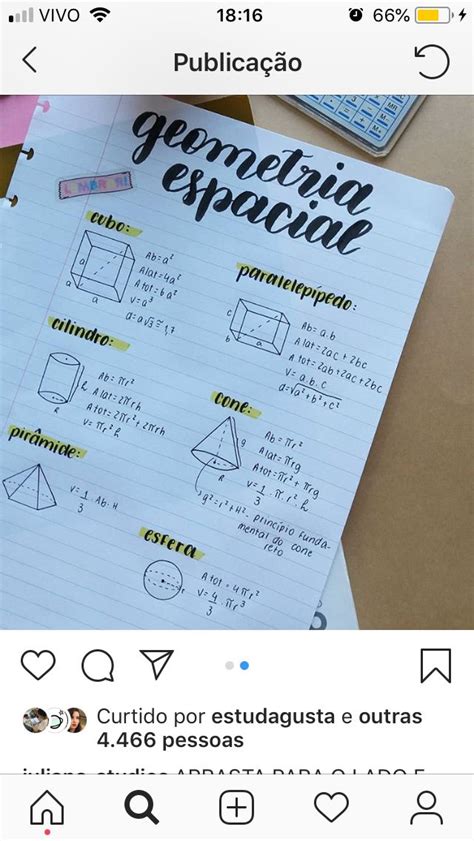 VIVO
18:16
66%
Publicação
geometria
espacial
cubo:
a
a
a
Ab = a²
Alat = 4a²
Atot = 6a²
V = a³
d = a√3 ≅ 1,7
paralelepípedo:
c
b
a
Ab = a.b
Alat = 2ac + 2bc
Atot = 2ab + 2ac + 2bc
V = a.b.c
d = √a² + b² + c²
cilindro:
h
R
Ab = πr²
Alat = 2πrh
Atot = 2πr² + 2πrh
V = πr² h
cone:
g
R
Ab = πr²
Alat = πrg
Atot = πr² + πrg
V = 1/3 . π . r² . h
g² = r² + H² - princípio funda-
mental do cone
reto
pirâmide:
V = 1/3 Ab . H
esfera
r
Atot = 4πr²
V = 4/3 . πr³
Curtido por estudagusta e outras
4.466 pessoas